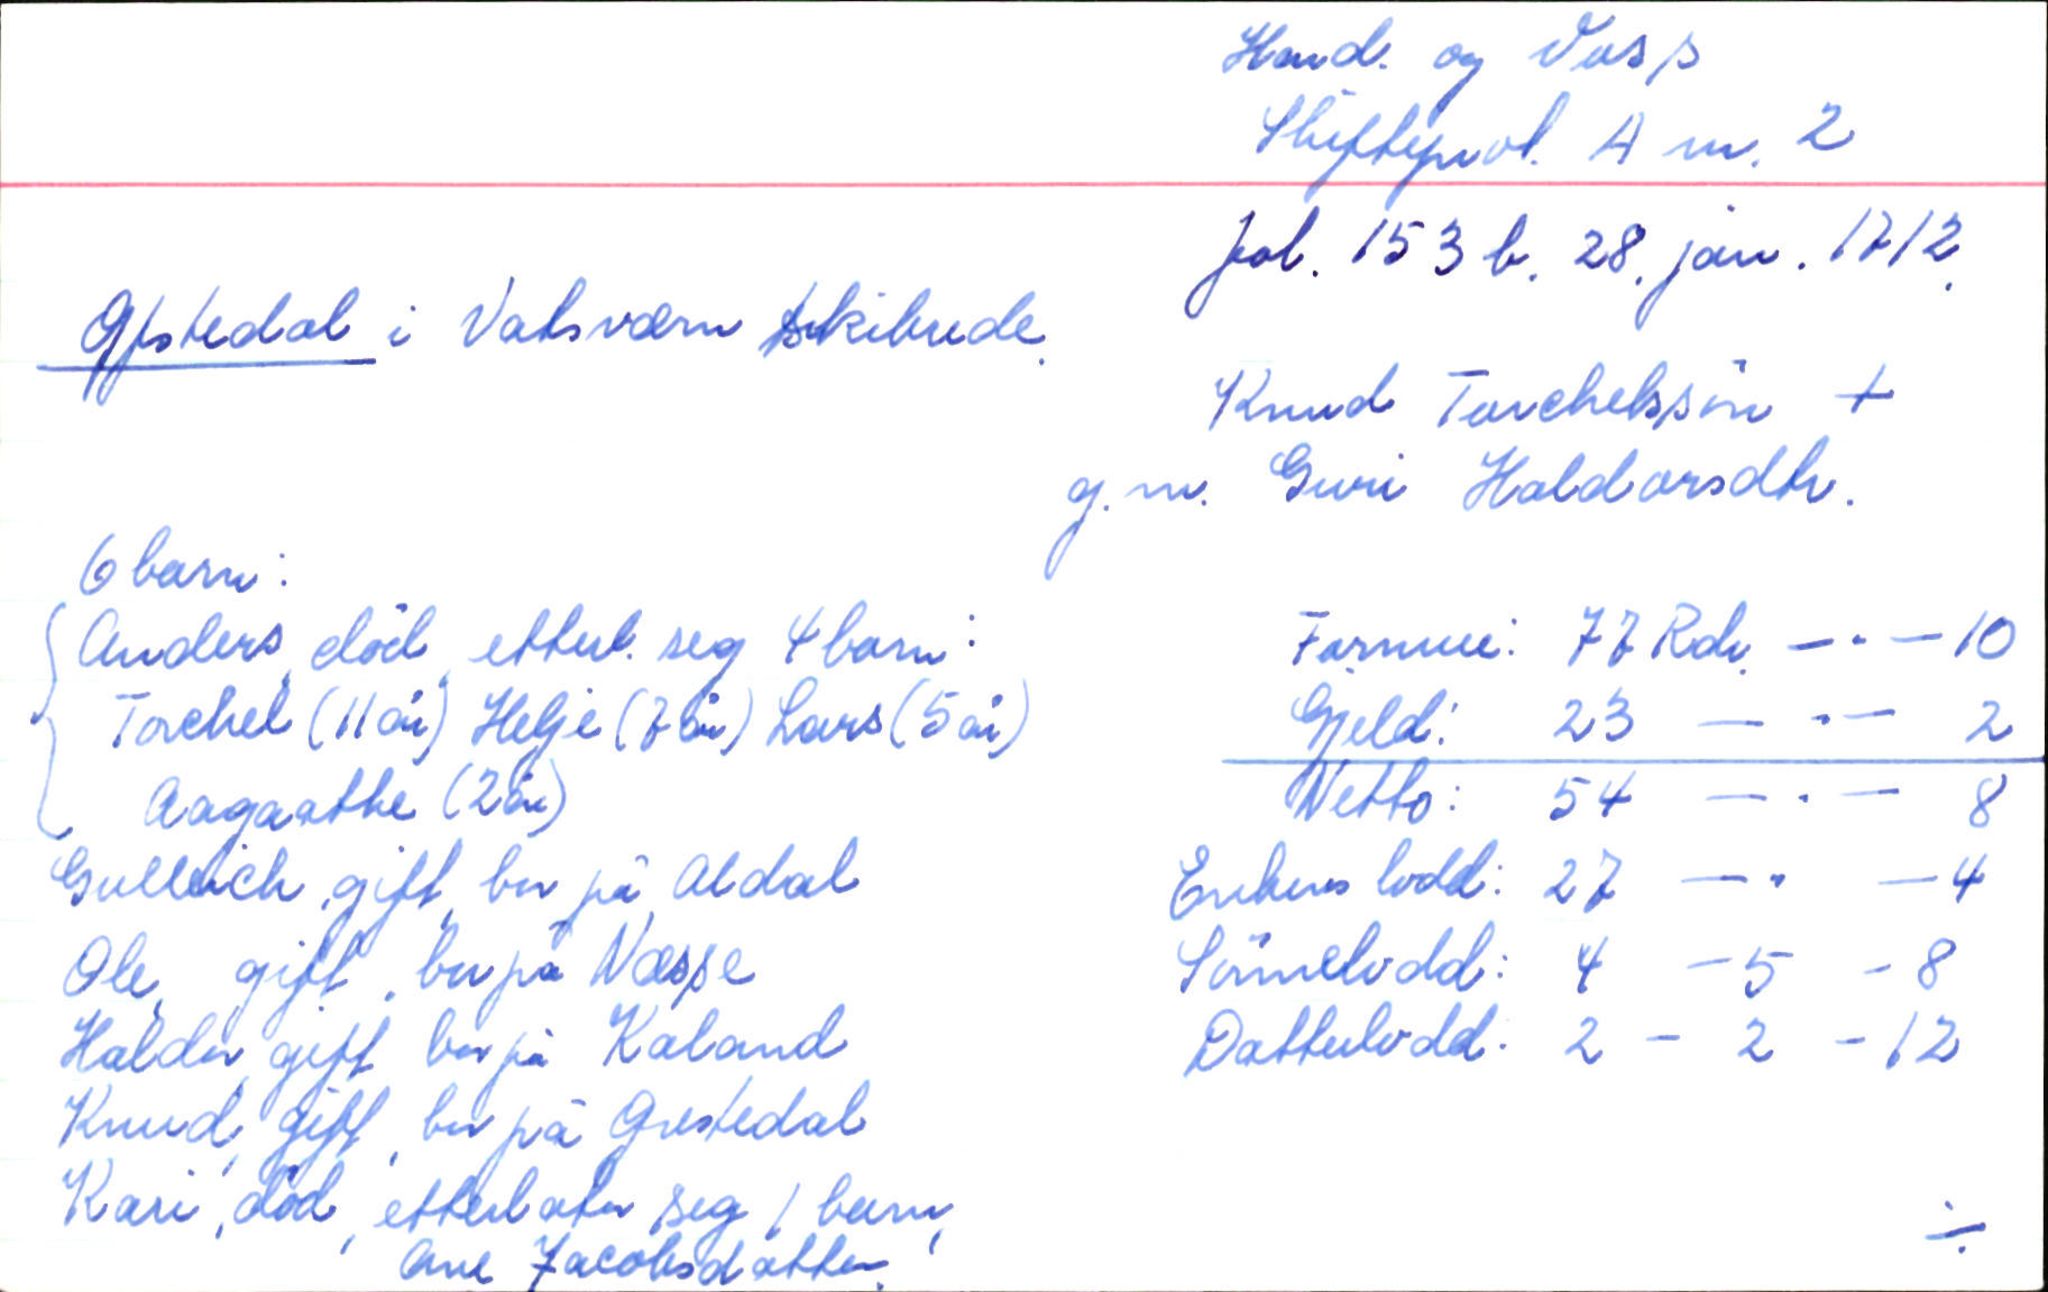 Hard. og Voss
Skifteprot. A nr. 2
fol. 153 b. 28. jan. 1712.
Gjstedal i Vatsværn skibrede.
Knud Torchelssön +
g. m. Guri Haldorsdtr.
6 barn:
Anders, död, etterl. seg 4 barn:
Torchel (11 år) Helje (7 år) Lars (5 år)
Aagaathe (2 år)
Gullich, gift, bor på Aldal
Ole, gift, bor på Næsse
Haldor, gift, bor på Kaland
Knud, gift, bor på Grestedal
Kari, död, etterlater seg 1 barn,
Ane Jacobsdatter.
Formue: 77 Rdr. — · — 10
Gjeld: 23 — · — 2
Netto: 54 — · — 8
Enkens lodd: 27 — · — 4
Sönnelodd: 4 — 5 — 8
Datterlodd: 2 — 2 — 12
÷